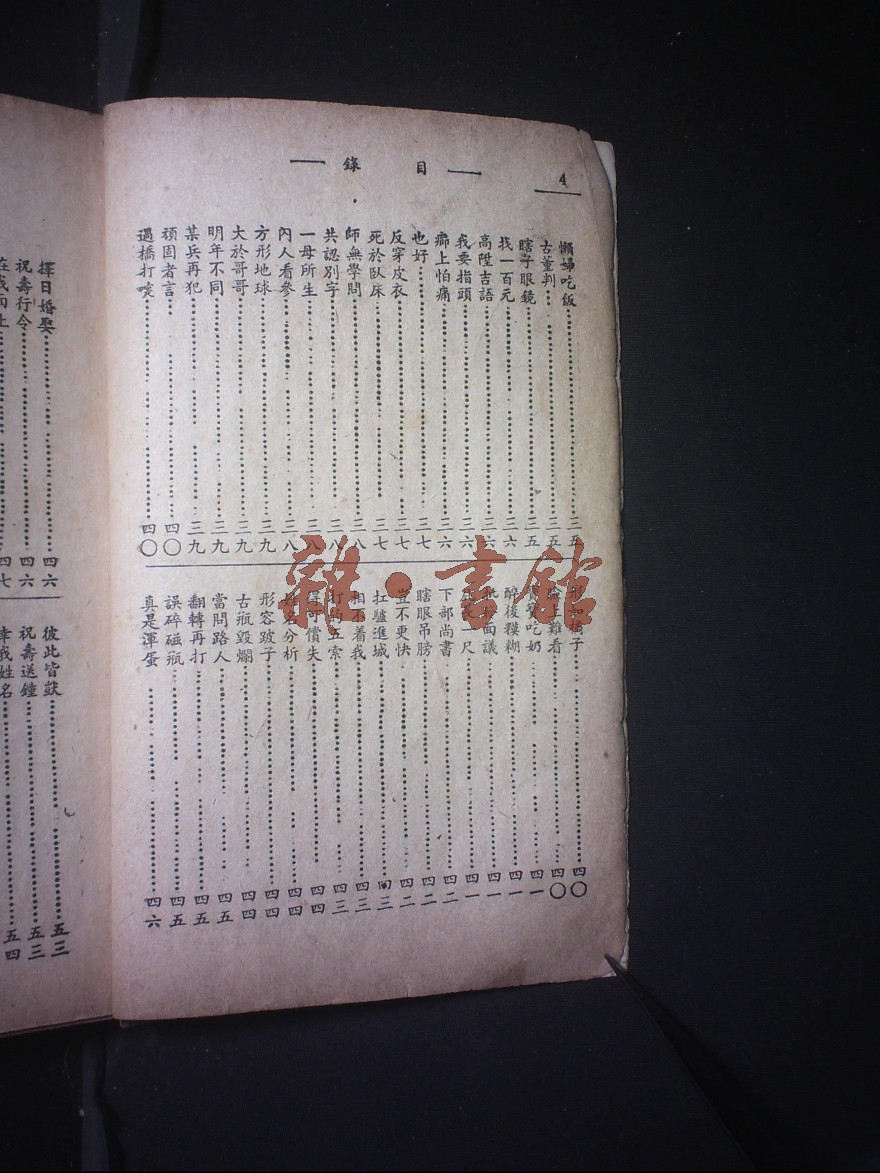 4
目錄
懶婦吃飯 三五
古董判 三五
瞎子眼鏡 三五
找一百元 三六
高陞吉語 三六
我要指頭 三六
上怕痛 三六
也好 三七
反穿皮衣 三七
死於臥床 三七
師無學問 三八
共認別字 三八
一母所生 三八
內人看參 三八
方形地球 三九
大於哥哥 三九
明年不同 三九
某兵再犯 三九
頑固者言 四〇
過橋打啶 四〇
形如橘子 四〇
臉上難看 四〇
寶吃奶 四一
醉後糢糊 四一
面議 四一
一尺 四一
下部尚書 四二
瞎眼吊膀 四二
豈不更快 四二
扛驢進城 四三
相不着我 四三
打的五索 四三
得可償失 四四
姓名分析 四四
形容跛子 四四
古瓶毀爛 四四
當問路人 四五
翻轉再打 四五
誤碎磁瓶 四五
真是渾蛋 四六
擇日婚娶 四六
祝壽行令 四六
在我面上 四七
彼此皆 五三
祝壽送鐘 五三
我姓名 五四
雜·書館